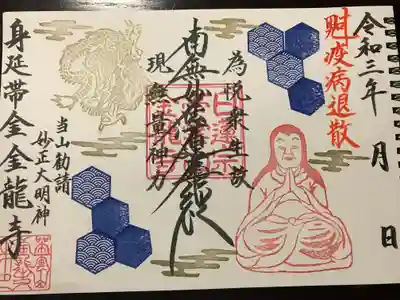 令和三年 月 日
疫病退散
為悦衆生故
南無妙法蓮華経
現無量神力
日蓮宗
当山勧請
妙正大明神
身延帯金金龍寺